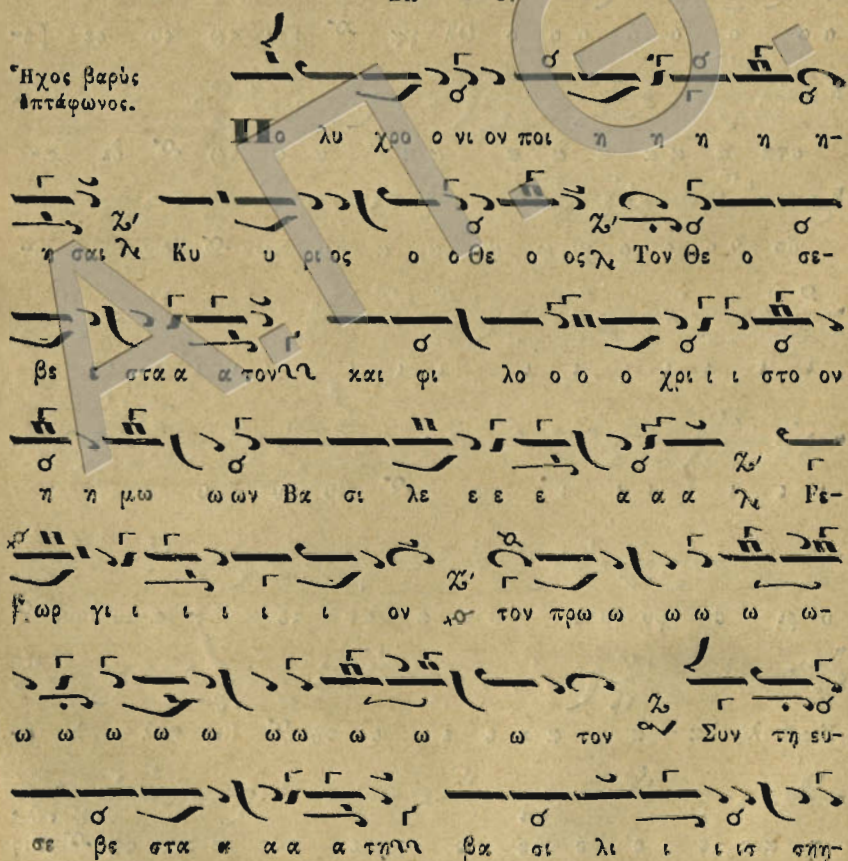 Ἦχος βαρὺς
ἑπτάφωνος.
Πο λυ χρο ο νι ον ποι η η η η η-
η σαι Κυ υ ριος ο ο Θε ο ος Τον Θε ο σε-
βε ε στα α α τον και φι λο ο ο ο χρι ι ι στο ον
η η μω ω ων Βα σι λε ε ε ε α α α Γε-
ωρ γι ι ι ι ι ι ον τον πρω ω ω ω ω ω-
ω ω ω ω ω ω ω ω ω ω τον Συν τη ευ-
σε βε στα α α α α τη βα σι λι ι ι ισ σηη-
Α.Π.Θ.